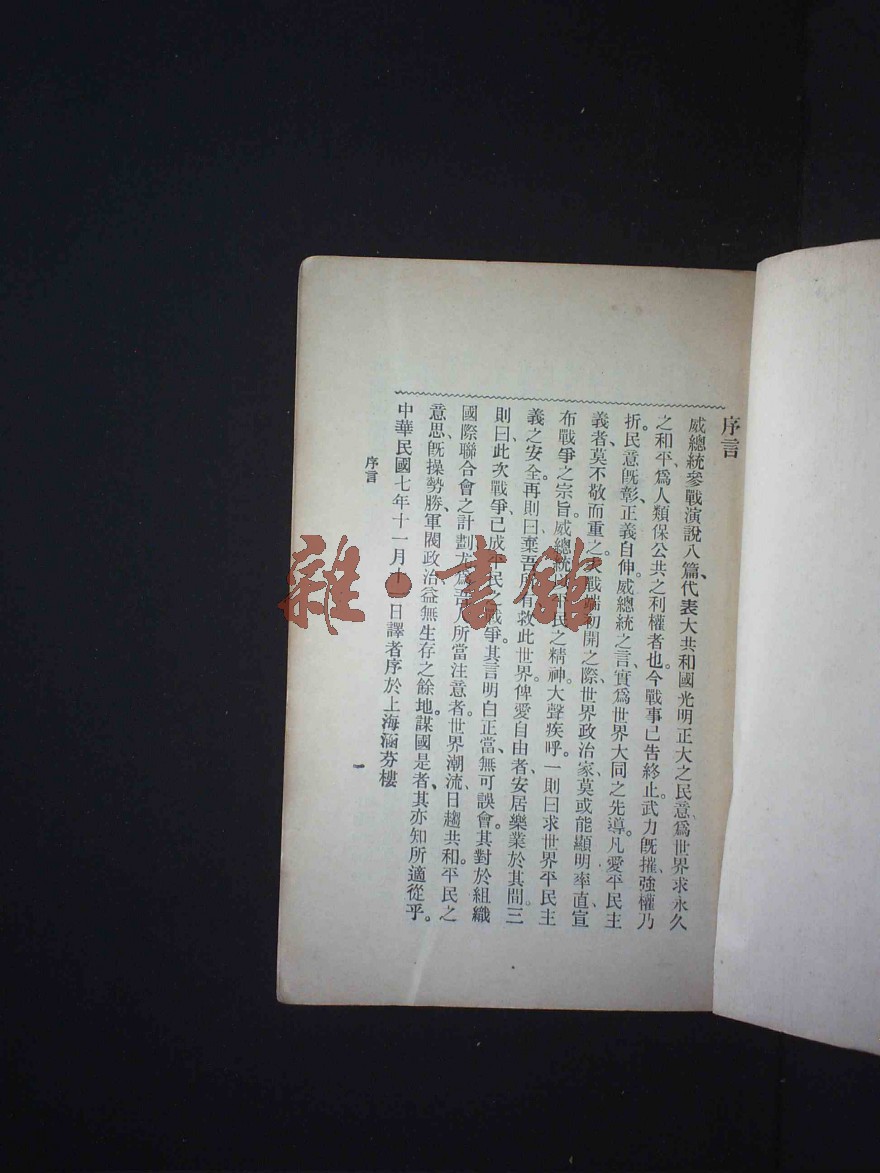 序言
威總統參戰演說八篇、代表大共和國光明正大之民意、爲世界求永久
之和平、爲人類保公共之利權者也。今戰事已告終止。武力旣摧、強權乃
折。民意旣彰、正義自伸。威總統之言、實爲世界大同之先導。凡愛平民主
義者、莫不敬而重之。大戰端初開之際、世界政治家、莫或能顯明率直、宣
布戰爭之宗旨。威總統平民之精神。大聲疾呼。一則曰求世界平民主
義之安全。再則曰棄吾所有、救此世界。俾愛自由者、安居樂業於其間。三
則曰、此次戰爭、已成平民之戰爭。其言明白正當、無可誤會。其對於組織
國際聯合會之計劃、尤爲吾人所當注意者。世界潮流、日趨共和。平民之
意思、旣操勢勝、軍閥政治、益無生存之餘地。謀國是者、其亦知所適從乎。
中華民國七年十一月十一日譯者序於上海涵芬樓
序言
一
雜·書館